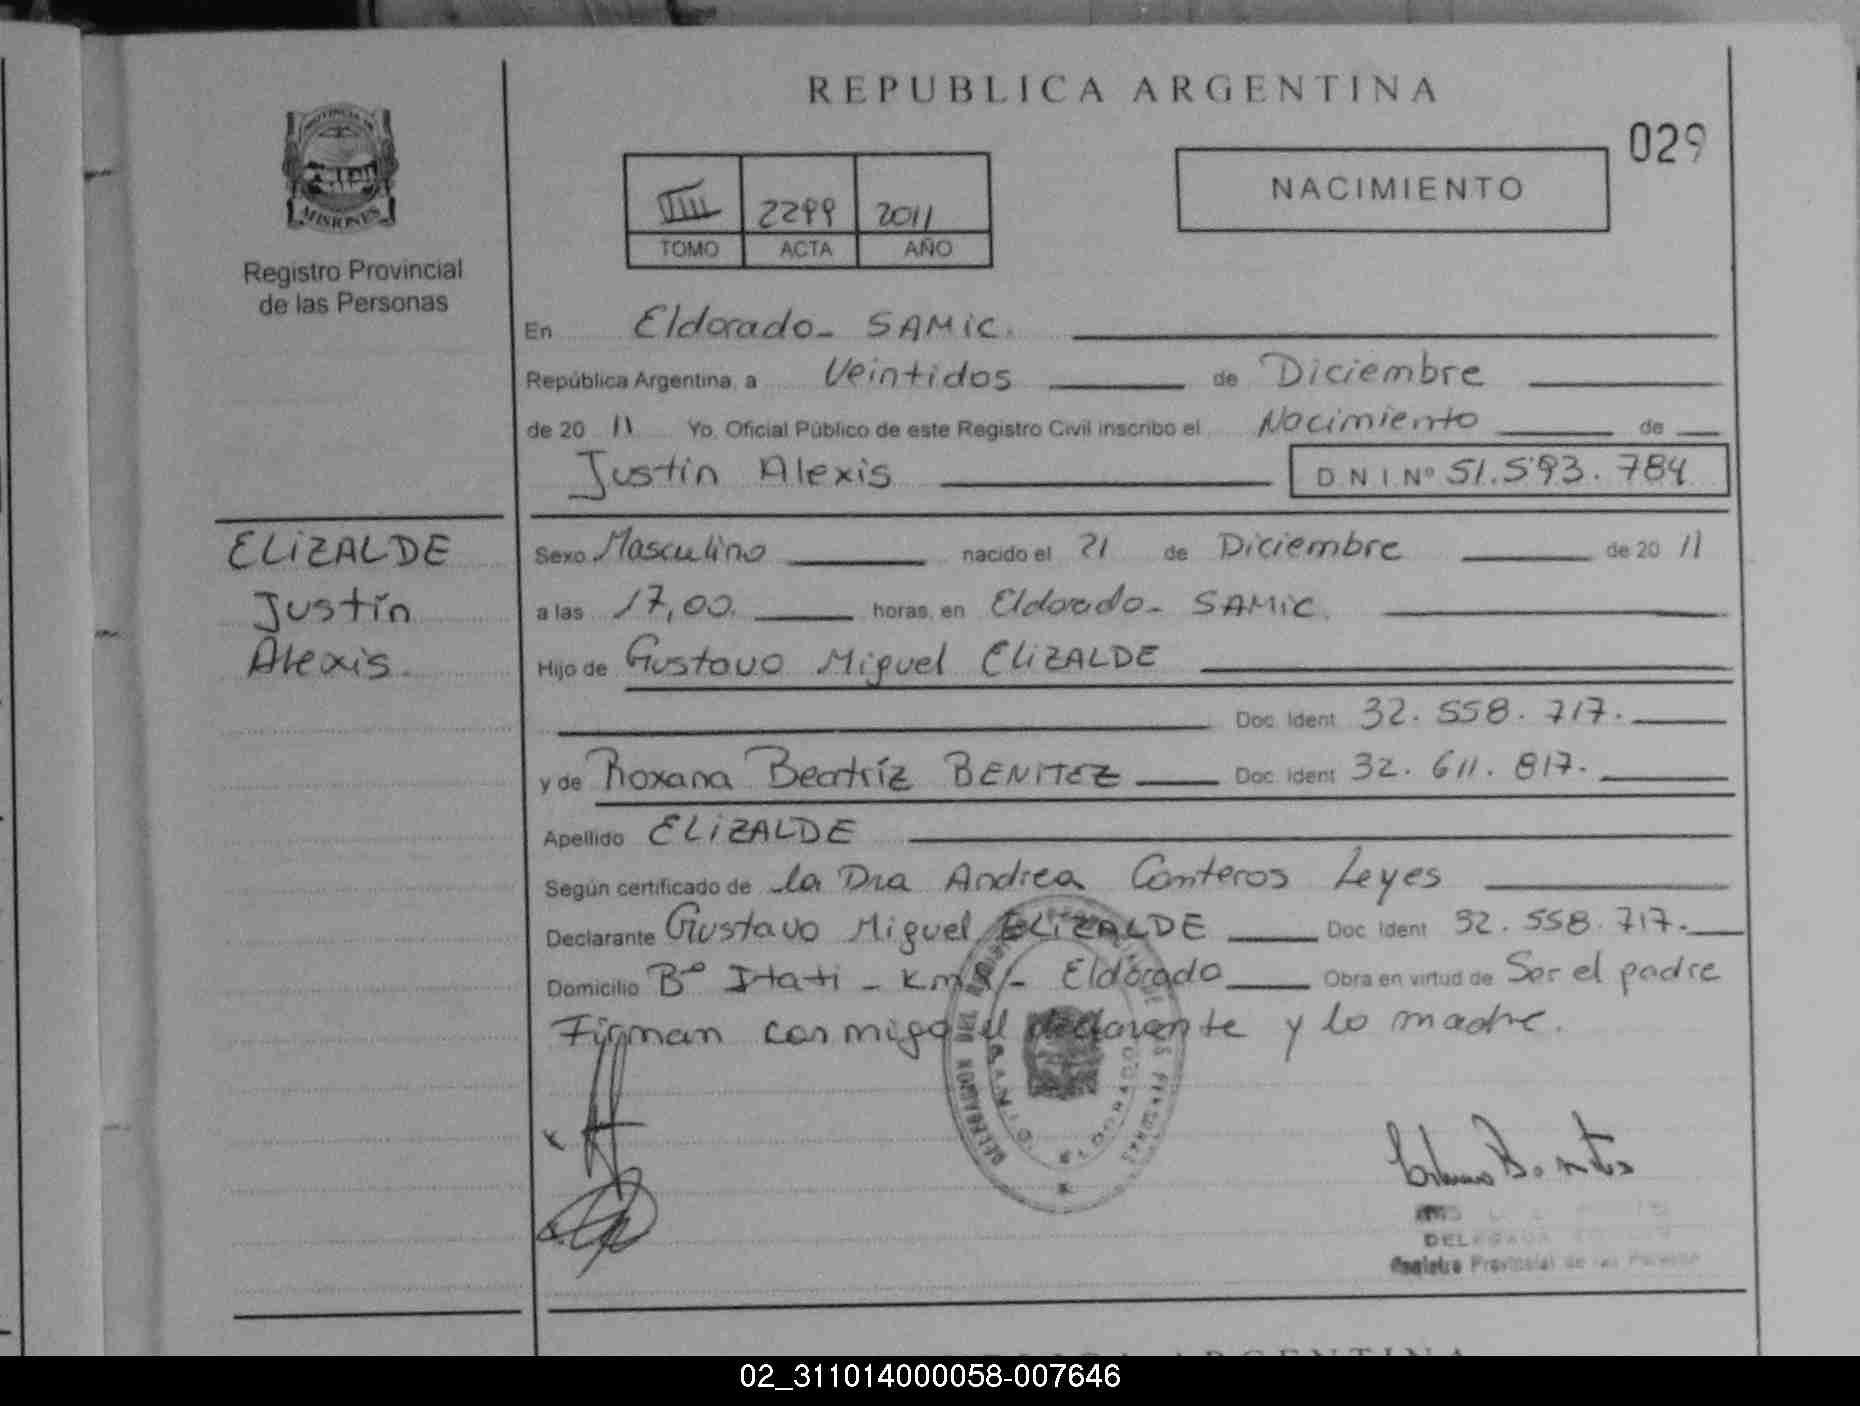 REPUBLICA ARGENTINA
029
PROVINCIA DE
MISIONES
Registro Provincial
de las Personas
NACIMIENTO
2299 2011
TOMO ACTA AÑO
En Eldorado - SAMIC.
República Argentina, a Veintidos de Diciembre
de 20 11 Yo, Oficial Público de este Registro Civil inscribo el Nacimiento de
Justin Alexis D N I Nº 51.593.784
ELIZALDE
Justín
Alexis.
Sexo Masculino nacido el 21 de Diciembre de 20 11
a las 17,00. horas, en Eldorado - SAMIC.
Hijo de Gustavo Miguel ELIZALDE
Doc. Ident 32.558.717.
y de Roxana Beatríz BENITEZ Doc. Ident 32.611.817.
Apellido ELIZALDE
Según certificado de la Dra Andrea Conteros Leyes
Declarante Gustavo Miguel ELIZALDE Doc Ident 32.558.717.
Domicilio Bº Itati - Km - Eldorado Obra en virtud de Ser el padre
Firman conmigo el declarante y la madre.
DELEGACION DEL REGISTRO DE LAS PERSONAS
ELDORADO
Registro Provincial de las Personas
REPUBLICA ARGENTINA
02_311014000058-007646